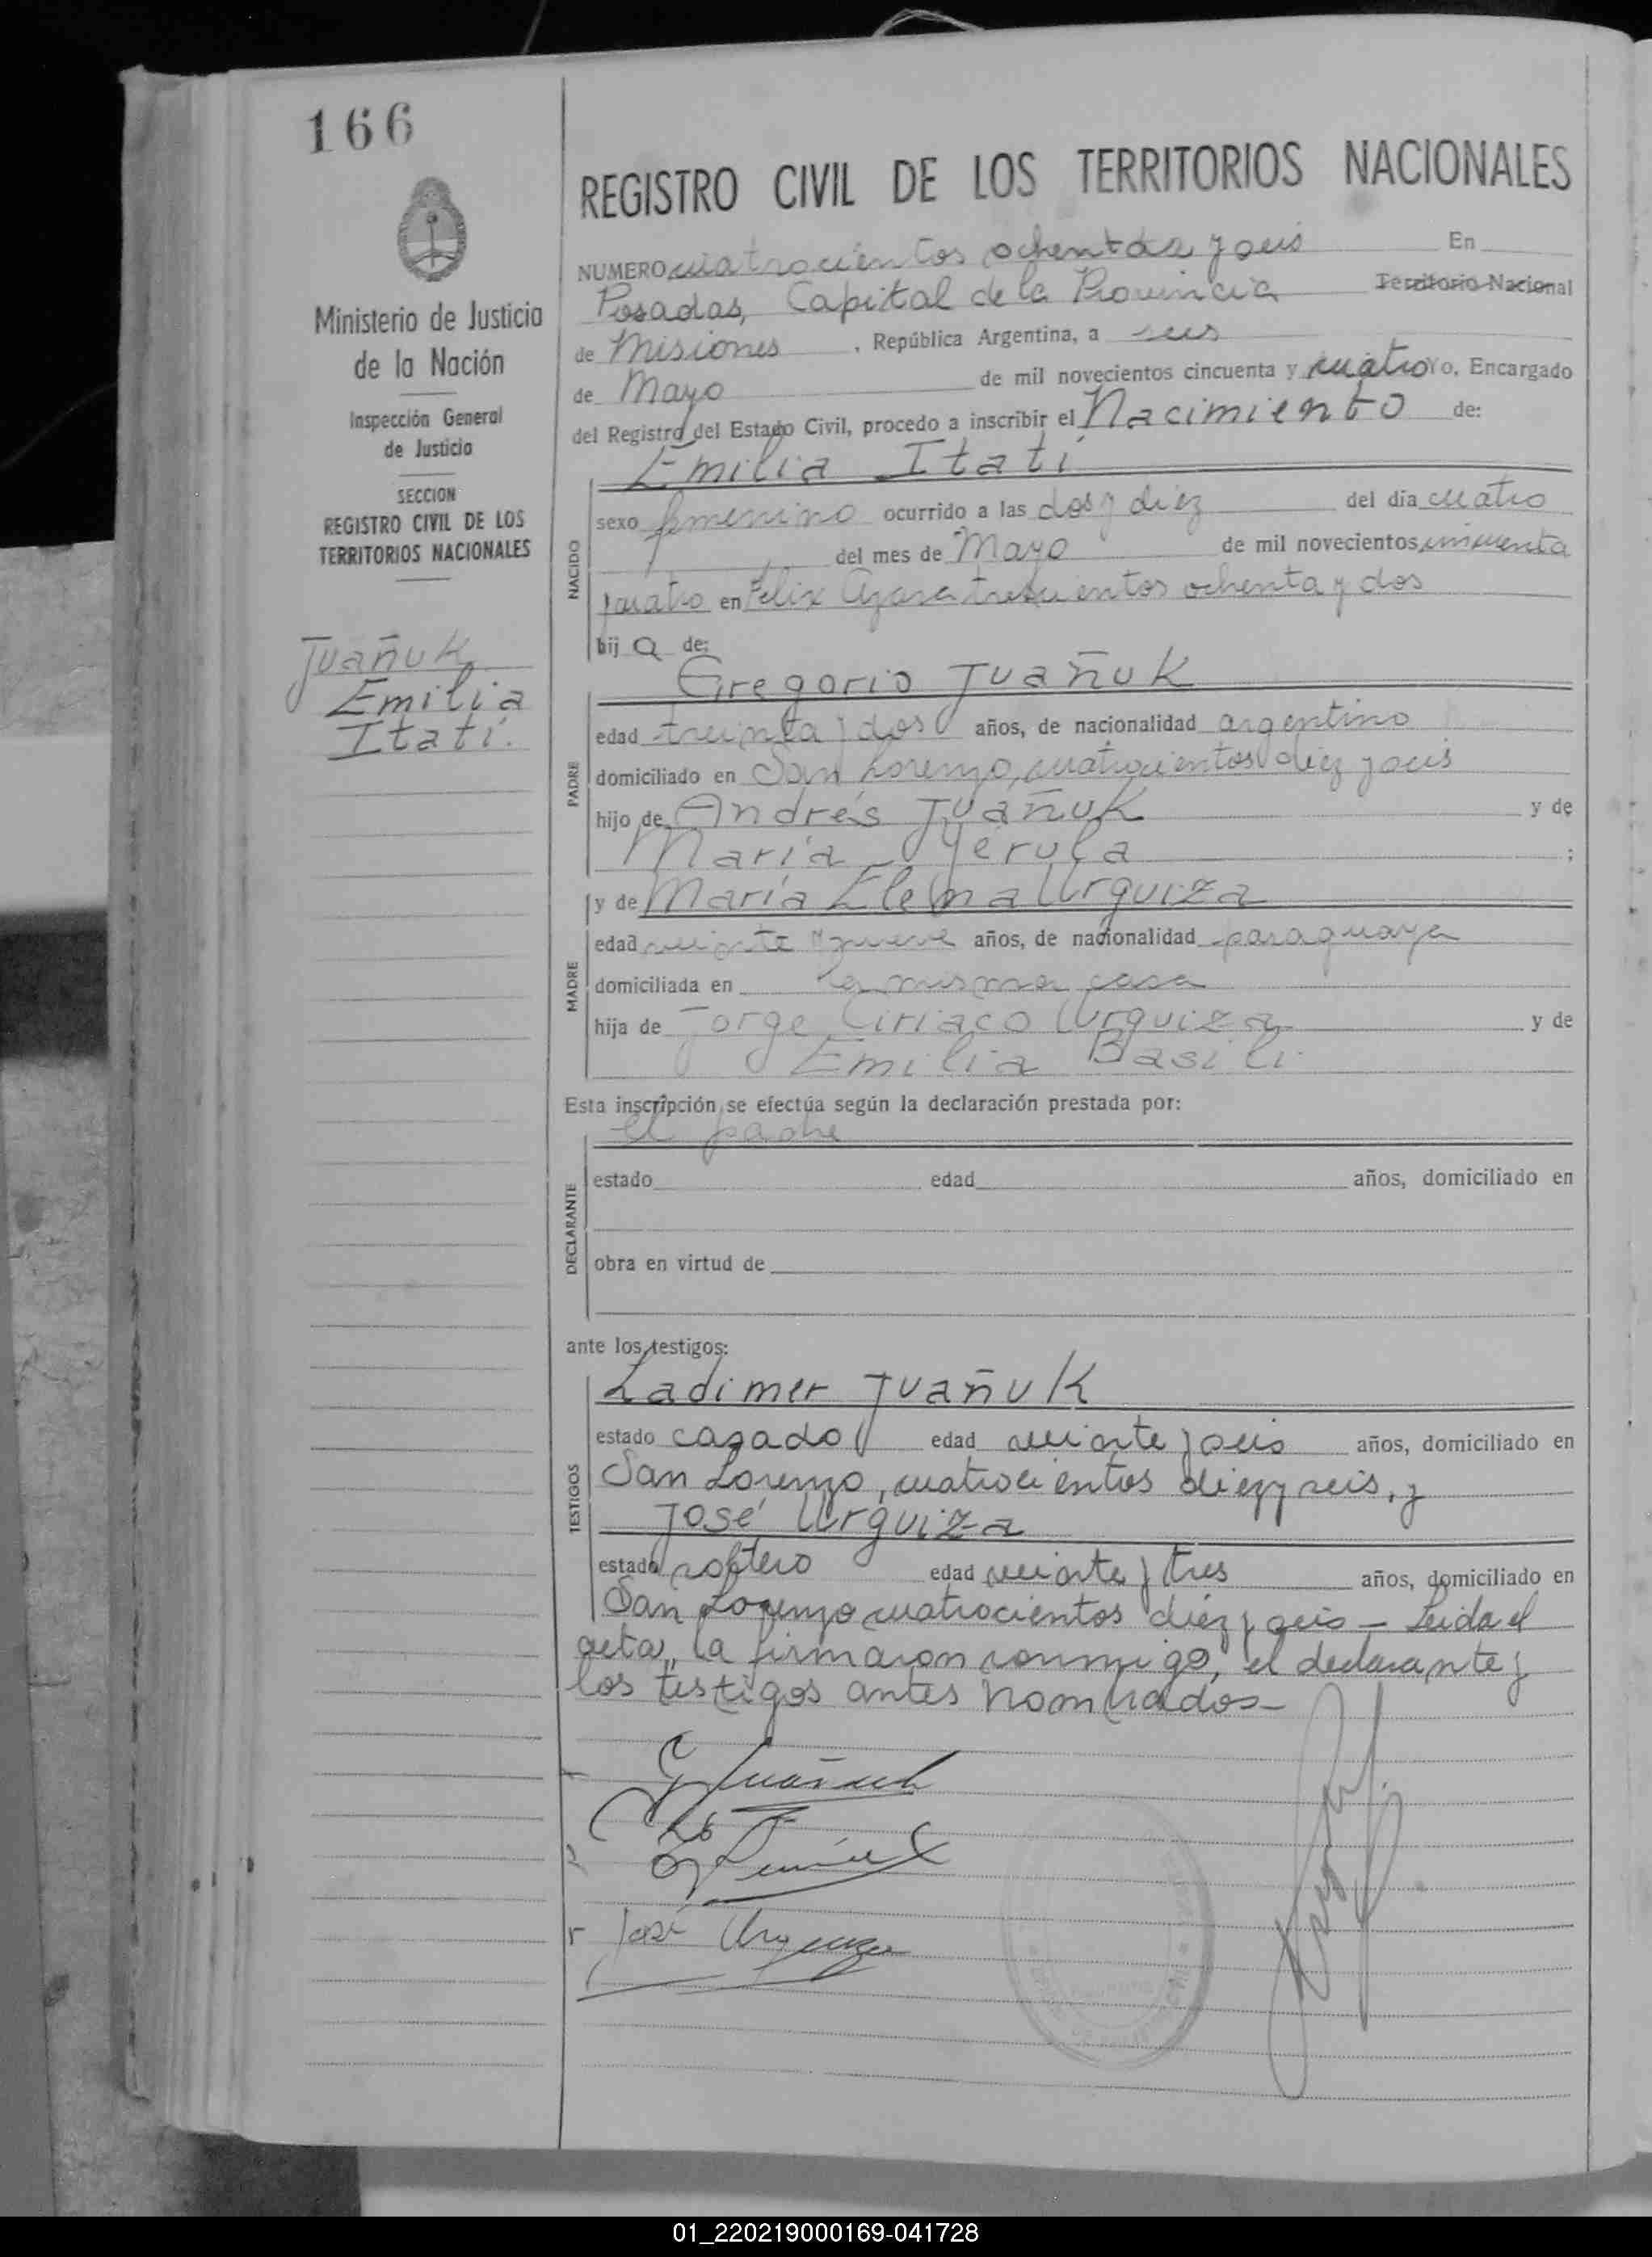 166
REGISTRO CIVIL DE LOS TERRITORIOS NACIONALES
Ministerio de Justicia
de la Nación
Inspección General
de Justicia
SECCION
REGISTRO CIVIL DE LOS
TERRITORIOS NACIONALES
Juañuk
Emilia
Itatí.
NUMERO cuatrocientos ochenta y seis En
Posadas, Capital de la Provincia Territorio Nacional
de Misiones , República Argentina, a seis
de Mayo de mil novecientos cincuenta y cuatro Yo, Encargado
del Registro del Estado Civil, procedo a inscribir el Nacimiento de:
Emilia Itatí
NACIDO
sexo femenino ocurrido a las dos y diez del día cuatro
del mes de Mayo de mil novecientos cincuenta
y cuatro en Félix Azara trescientos ochenta y dos
hij a de:
Gregorio Juañuk
PADRE
edad treinta y dos años, de nacionalidad argentino
domiciliado en San Lorenzo, cuatrocientos diez y seis
hijo de Andrés Juañuk y de
María Yérula ;
y de María Elena Urquiza
MADRE
edad veinte y nueve años, de nacionalidad paraguaya
domiciliada en la misma casa
hija de Jorge Ciriaco Urquiza y de
Emilia Basili
Esta inscripción se efectúa según la declaración prestada por:
el padre
DECLARANTE
estado edad años, domiciliado en
obra en virtud de
ante los testigos:
Ladimer Juañuk
TESTIGOS
estado casado edad veinte y seis años, domiciliado en
San Lorenzo, cuatrocientos diez y seis, y
José Urquiza
estado soltero edad veinte y tres años, domiciliado en
San Lorenzo cuatrocientos diez y seis – Leida el
acta, la firmaron conmigo, el declarante y
los testigos antes nombrados –
G Juañuk
José Urquiza
01_220219000169-041728